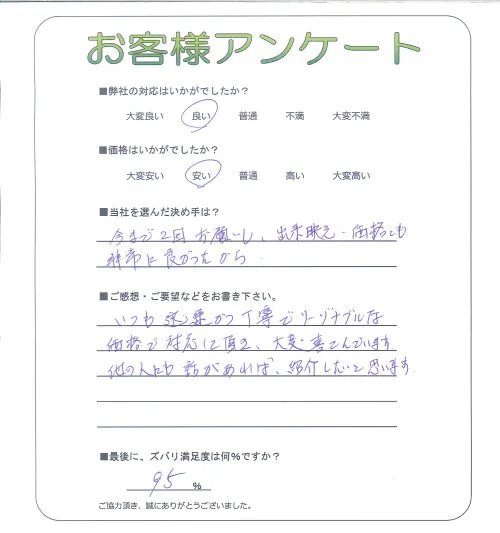 お客様アンケート
■弊社の対応はいかがでしたか?
大変良い 良い 普通 不満 大変不満
■価格はいかがでしたか?
大変安い 安い 普通 高い 大変高い
■当社を選んだ決め手は?
今まで2回お願いし、出来映え・価格とも
非常に良かったから
■ご感想・ご要望などをお書き下さい。
いつも迅速かつ丁寧でリーゾナブルな
価格で対応して頂き、大変喜んでいます
他の人にも話があれば、紹介したいと思います
■最後に、ズバリ満足度は何%ですか?
95 %
ご協力頂き、誠にありがとうございました。